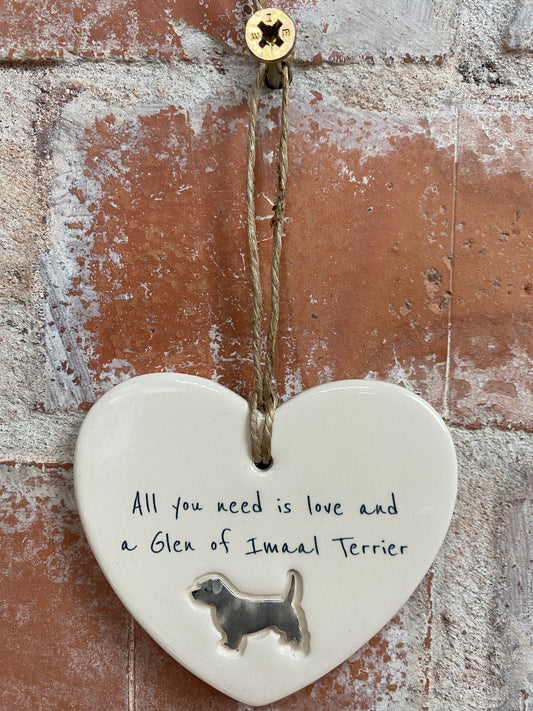 All you need is love and
a Glen of Imaal Terrier